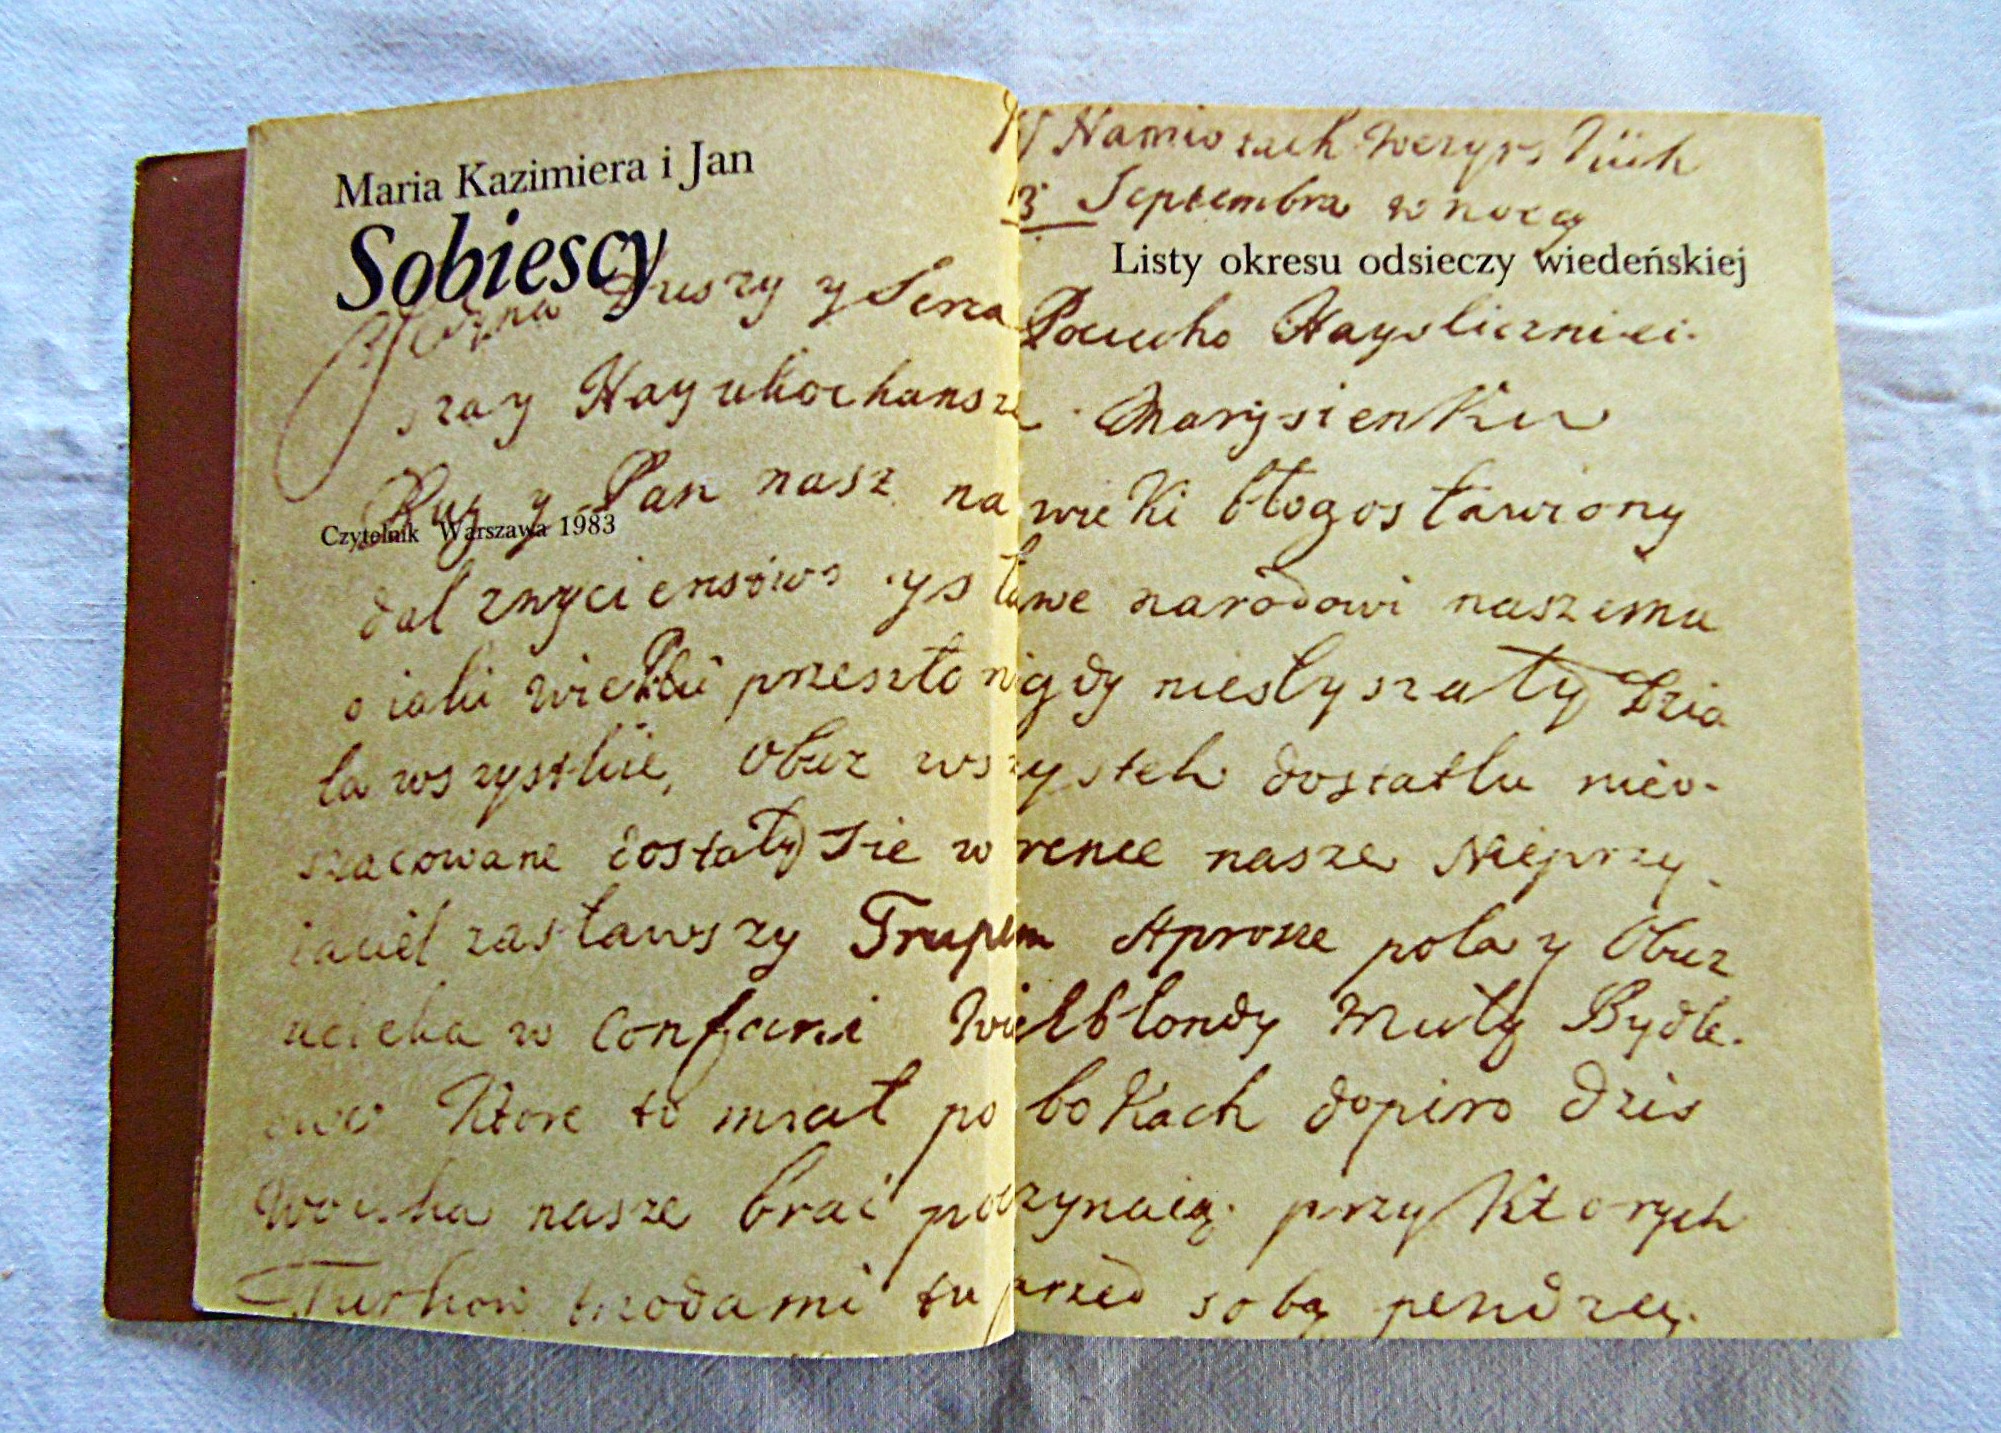 Maria Kazimiera i Jan
Sobiescy
Czytelnik Warszawa 1983
W Namiotach Wezyrskiich
13 Septembra w nocy
Listy okresu odsieczy wiedeńskiej
Duszy y Serca Pociecho Naysliczniei-
sza y Nayukochansza Marysienku
Bug y Pan nasz na wieki błogosławiony
dal zwycienstwo y sławe narodowi naszemu
o iakii wieki przeszło nigdy niesłyszały Dzia
ła wszystkie, Obuz wszystek dostatku nieo-
szacowane dostały sie w rence nasze Nieprzy-
iaciel zasławszy Trupem Aprosze pola y Obuz
ucieka w Confuzii Wielblondy Muły Bydle-
ktore to miał po bokach dopiro dzis
Woiska nasze brac poczynaią przy Ktorych
Turkow trzodami tu przed sobą pendzeą.